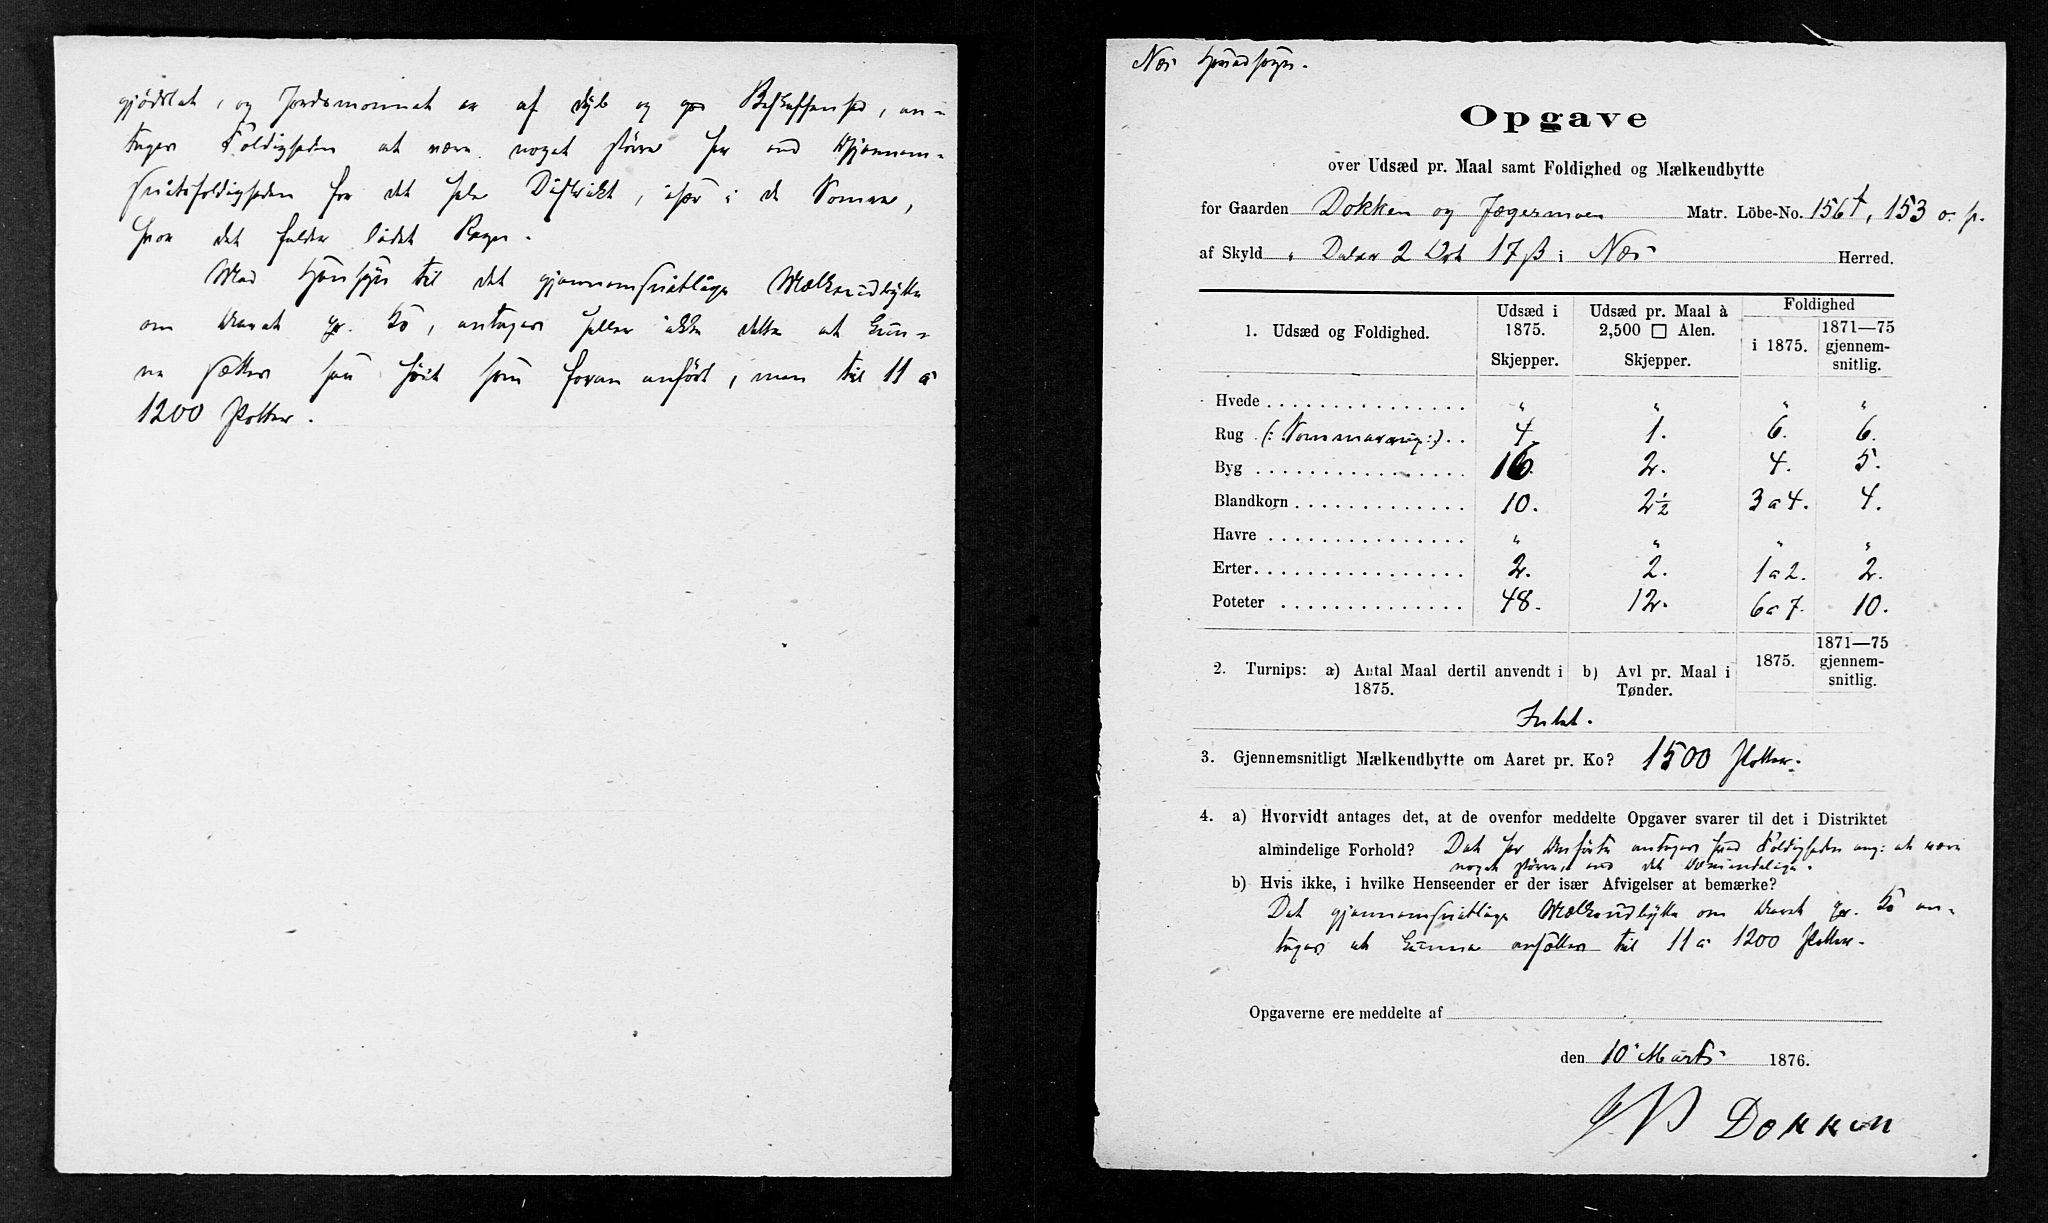 gjødslet, og Jordsmonnet er af dyb og god Beskaffenhed, an-
tages Foldigheden at være noget større her end Gjennem-
snitsfoldigheden for det hele Distrikt, især i de Somre,
hvor det falder lidet Regn.
Med Hensyn til det gjennemsnitlige Mælkeudbytte
om Aaret pr. Ko, antages heller ikke dette at kun-
ne sættes saa høit som foran anført, men til 11 à
1200 Potter.
Næs Hovedsogn.
Opgave
over Udsæd pr. Maal samt Foldighed og Mælkeudbytte
for Gaarden Dokken og Jægermoen Matr. Löbe-No. 156t, 153 o. p.
af Skyld „ Daler 2 Ort 17 ß i Næs Herred.
1. Udsæd og Foldighed. Udsæd i 1875. Skjepper. Udsæd pr. Maal à 2,500 □ Alen. Skjepper. Foldighed i 1875. 1871—75 gjennem-snitlig.
Hvede „ „ „ „
Rug (: Sommerrug :) 4. 1. 6. 6.
Byg 16. 2. 4. 5.
Blandkorn 10. 2½ 3 a 4. 4.
Havre „ „ „ „
Erter 2. 2. 1 a 2. 2.
Poteter 48. 12. 6 a 7. 10.
2. Turnips: a) Antal Maal dertil anvendt i 1875. b) Avl pr. Maal i Tønder. 1875. 1871—75 gjennem-snitlig.
Intet.
3. Gjennemsnitligt Mælkeudbytte om Aaret pr. Ko? 1500 Potter.
4. a) Hvorvidt antages det, at de ovenfor meddelte Opgaver svarer til det i Distriktet
almindelige Forhold? Det her Anførte antages hvad Foldigheden ang: at være
noget større, end det Almindelige.
b) Hvis ikke, i hvilke Henseender er der især Afvigelser at bemærke?
Det gjennemsnitlige Mælkeudbytte om Aaret pr. Ko an-
tages at kunne ansættes til 11 à 1200 Potter.
Opgaverne ere meddelte af
den 10 Marts 1876.
Dokken